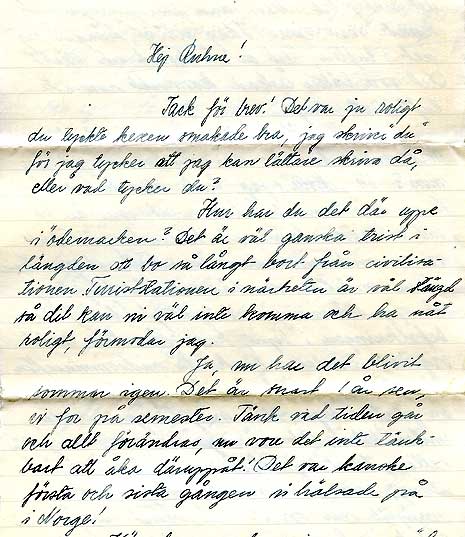 Hej Ruhne!
Tack för brev! Det var ju roligt
du tyckte kexen smakade bra, jag skriver du
för jag tycker att jag kan lättare skriva då,
eller vad tycker du?
Hur har du det där uppe
i ödemarken? Det är väl ganska trist i
längden att bo så långt bort från civilisa-
tionen. Turiststationen i närheten är väl stängd
så dit kan ni väl inte komma och ha nåt
roligt, förmodar jag.
Ja, nu har det blivit
sommar igen. Det är snart 1 år sen
vi for på semester. Tänk vad tiden går
och allt förändras, nu vore det inte tänk-
bart att åka däruppåt! Det var kanske
första och sista gången vi hälsade på
i Norge!